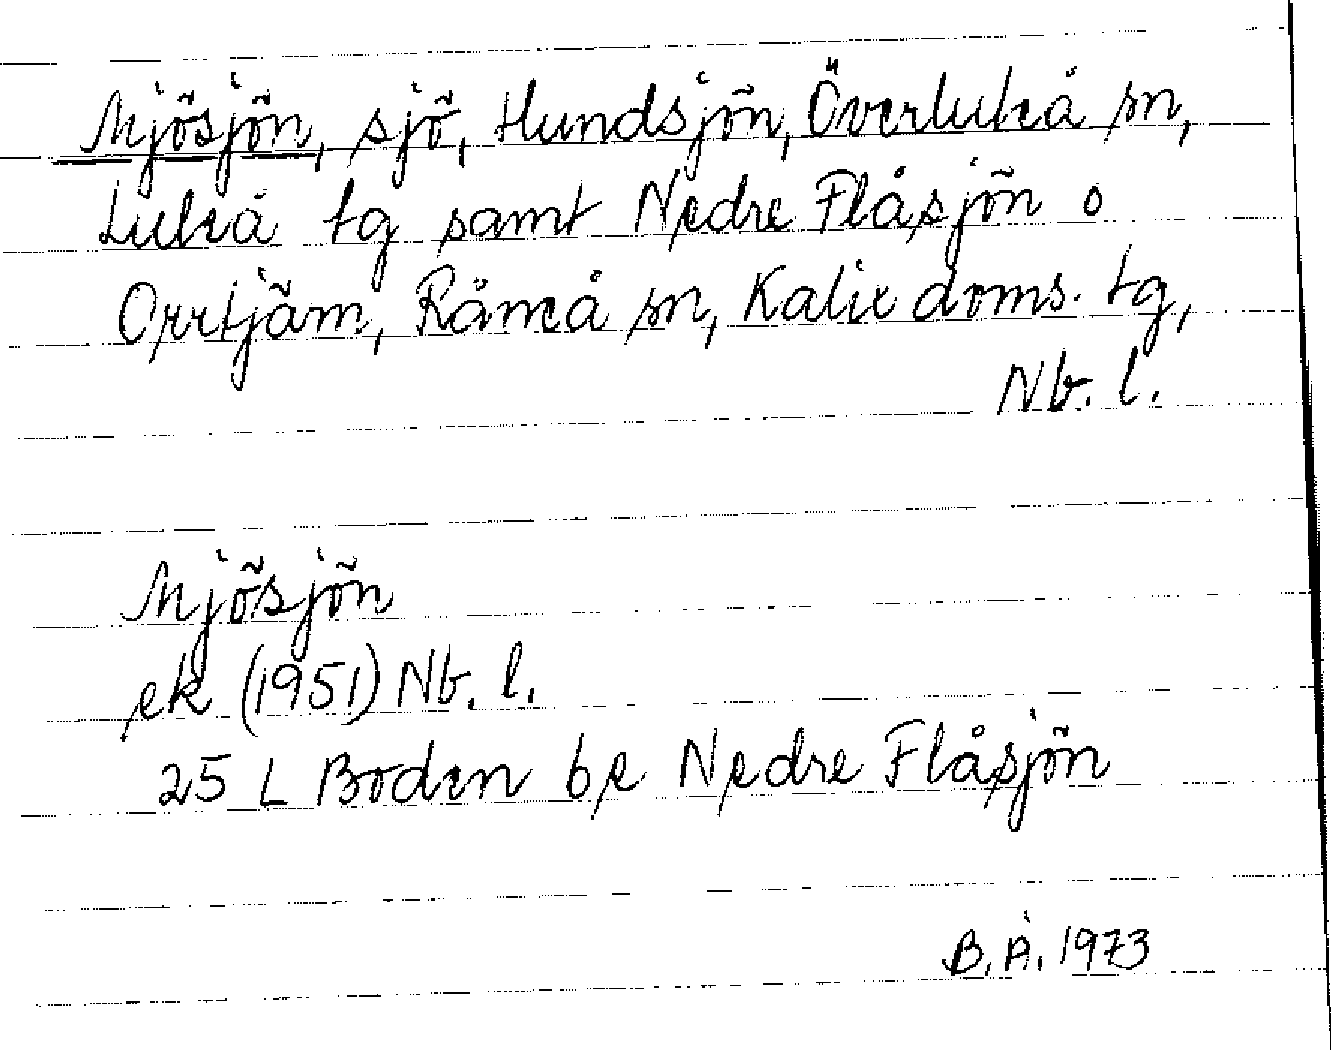 Mjösjön, sjö, Hundsjön, Överluleå sn,
Luleå tg samt Nedre Flåsjön o
Orrtjärn, Råneå sn, Kalix doms. tg,
Nb. l.
Mjösjön
ek (1951) Nb. l.
25 L Boden be Nedre Flåsjön
B. Å. 1973